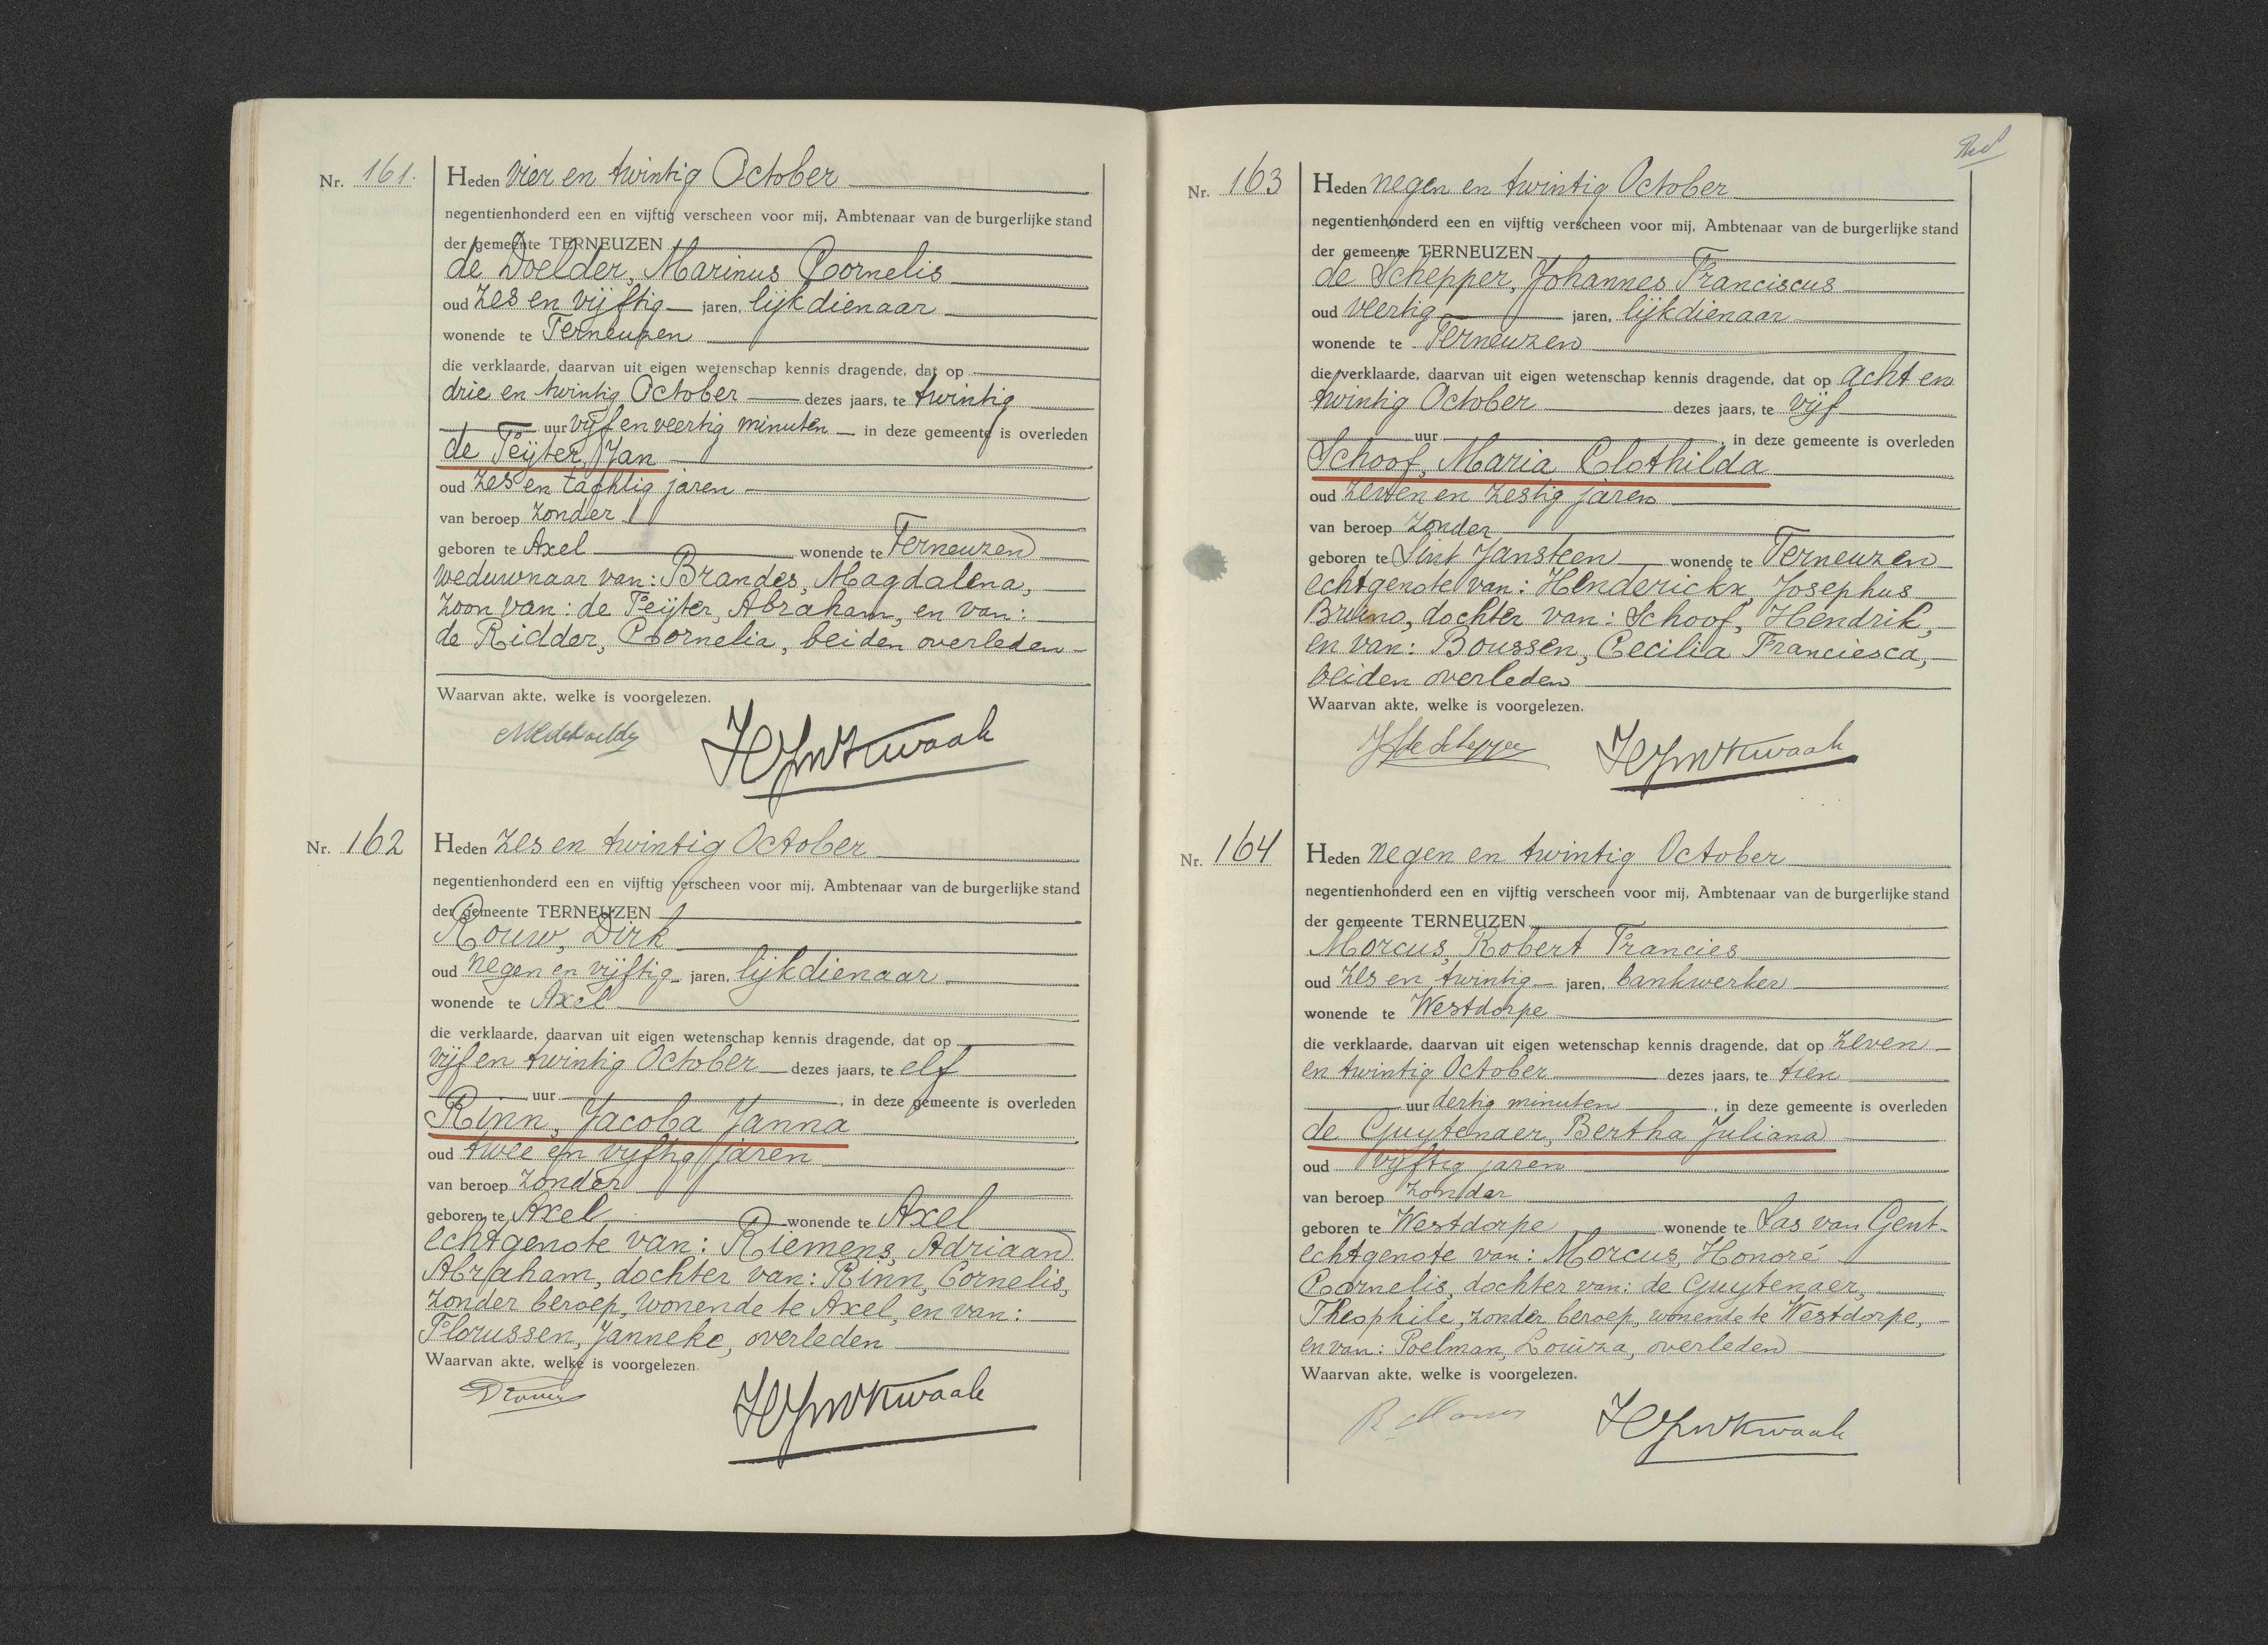 Nr. 161.
Heden vier en twintig October
negentienhonderd een en vijftig verscheen voor mij, Ambtenaar van de burgerlijke stand
der gemeente TERNEUZEN
de Doelder, Marinus Cornelis
oud zes en vijftig jaren, lijkdienaar
wonende te Terneuzen
die verklaarde, daarvan uit eigen wetenschap kennis dragende, dat op
drie en twintig October dezes jaars, te twintig
uur vijf en veertig minuten in deze gemeente is overleden
de Feijter, Jan
oud zes en tachtig jaren
van beroep zonder
geboren te Axel wonende te Terneuzen
weduwnaar van: Brandes, Magdalena,
zoon van: de Feijter, Abraham, en van:
de Ridder, Cornelia, beiden overleden
Waarvan akte, welke is voorgelezen.
Nr. 162
Heden zes en twintig October
negentienhonderd een en vijftig verscheen voor mij, Ambtenaar van de burgerlijke stand
der gemeente TERNEUZEN
Rouw, Dirk
oud negen en vijftig jaren, lijkdienaar
wonende te Axel
die verklaarde, daarvan uit eigen wetenschap kennis dragende, dat op
vijf en twintig October dezes jaars, te elf
uur , in deze gemeente is overleden
Rinn, Jacoba Janna
oud twee en vijftig jaren
van beroep zonder
geboren te Axel wonende te Axel
echtgenote van: Riemens, Adriaan
Abraham, dochter van: Rinn, Cornelis,
zonder beroep, wonende te Axel, en van:
Florussen, Janneke, overleden
Waarvan akte, welke is voorgelezen.
Nr. 163
Heden negen en twintig October
negentienhonderd een en vijftig verscheen voor mij, Ambtenaar van de burgerlijke stand
der gemeente TERNEUZEN
de Schepper, Johannes Franciscus
oud veertig jaren, lijkdienaar
wonende te Terneuzen
die verklaarde, daarvan uit eigen wetenschap kennis dragende, dat op acht en
twintig October dezes jaars, te vijf
uur , in deze gemeente is overleden
Schoof, Maria Clothilda
oud zeven en zestig jaren
van beroep zonder
geboren te Sint Jansteen wonende te Terneuzen
echtgenote van: Henderickx, Josephus
Bruno, dochter van: Schoof, Hendrik,
en van: Boussen, Cecilia Franciesca,
beiden overleden
Waarvan akte, welke is voorgelezen.
JF de Schepper
Nr. 164
Heden negen en twintig October
negentienhonderd een en vijftig verscheen voor mij, Ambtenaar van de burgerlijke stand
der gemeente TERNEUZEN
Morcus, Robert Francies
oud zes en twintig jaren, bankwerker
wonende te Westdorpe
die verklaarde, daarvan uit eigen wetenschap kennis dragende, dat op zeven
en twintig October dezes jaars, te tien
uur dertig minuten , in deze gemeente is overleden
de Guytenaer, Bertha Juliana
oud vijftig jaren
van beroep zonder
geboren te Westdorpe wonende te Sas van Gent
echtgenote van: Morcus, Honoré
Cornelis, dochter van: de Guytenaer,
Theophile, zonder beroep, wonende te Westdorpe,
en van: Poelman, Louiza, overleden
Waarvan akte, welke is voorgelezen.